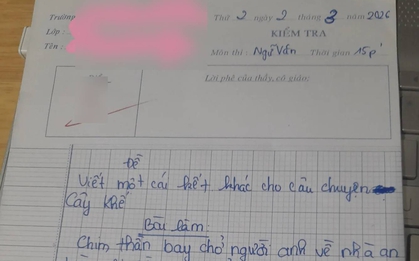 Trường
Thứ 2 ngày 2 tháng 3 năm 2026
Lớp :
KIỂM TRA
Tên :
Môn thi : Ngữ Văn Thời gian 15p'
Lời phê của thầy, cô giáo:
Đề
Viết một cái kết khác cho câu chuyện
Cây khế
Bài làm:
Chim thần bay chở người anh về nhà an